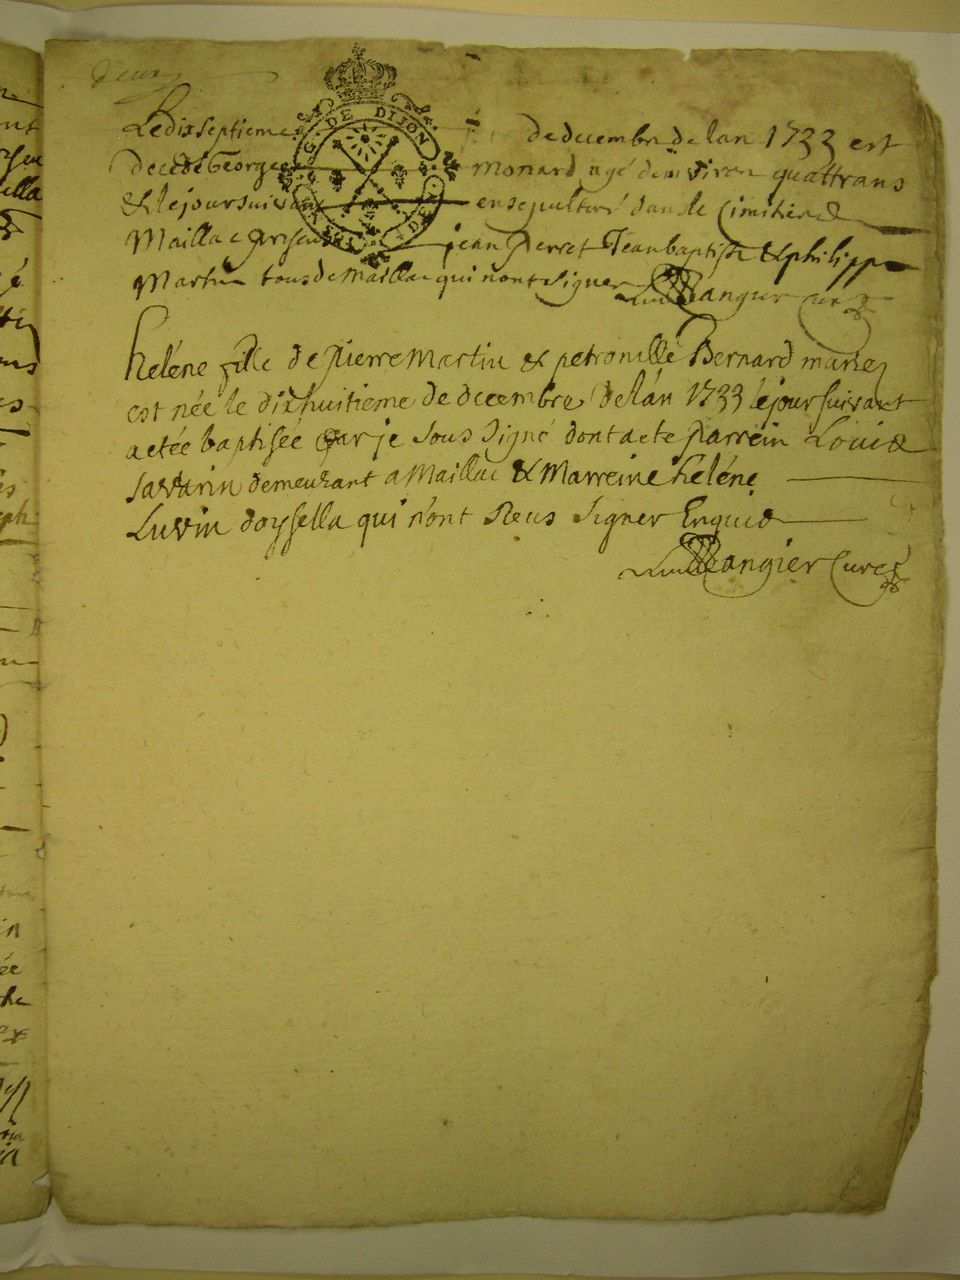 deux
G. DE DIJON
Le dixseptieme de decembre de lan 1733 est
decedé George monard agé denviron quattrans
& le jour suivant ensepulturé dans le Cimitiere de
Maillac presens jean pierret Jean baptiste & philippe
Martin tous de Maillac qui nont signer Mangier Curé
heléne fille de pierre martin & petronille Bernard mariez
est née le dixhuitieme de decembre de lán 1733 le jour suivant
a etée baptisée par je sous signé dont a ete parrein Louis
savarin demeurant a Maillac & Marreine heléne
Luvin doysella qui nont sceus signer Enquis
Mangier Curé